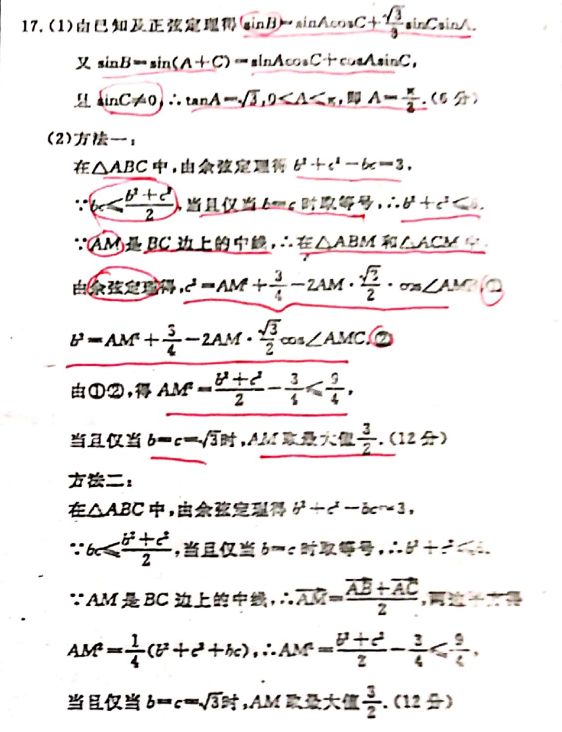 17.(1)由已知及正弦定理得 sinB=sinAcosC+√3/3 sinCsinA.
又 sinB=sin(A+C)=sinAcosC+cosAsinC,
且 sinC≠0,∴tanA=√3,0<A<π,即 A=π/3.(6分)
(2)方法一:
在△ABC中,由余弦定理得 b²+c²-bc=3,
∵bc≤(b²+c²)/2,当且仅当 b=c 时取等号,∴b²+c²≤6.
∵AM 是 BC 边上的中线,∴在△ABM 和△ACM 中,
由余弦定理得,c²=AM²+3/4-2AM·√3/2·cos∠AMB,①
b²=AM²+3/4-2AM·√3/2 cos∠AMC.②
由①②,得 AM²=(b²+c²)/2-3/4≤9/4,
当且仅当 b=c=√3时,AM取最大值3/2.(12分)
方法二:
在△ABC中,由余弦定理得 b²+c²-bc=3,
∵bc≤(b²+c²)/2,当且仅当 b=c 时取等号,∴b²+c²≤6.
∵AM 是 BC 边上的中线,∴AM→=(AB→+AC→)/2,两边平方得
AM²=1/4(b²+c²+bc),∴AM²=(b²+c²)/2-3/4≤9/4,
当且仅当 b=c=√3时,AM 取最大值3/2.(12分)